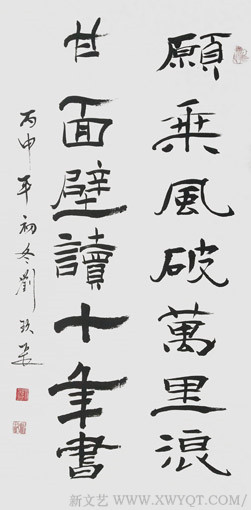 願乘風破萬里浪
甘面壁讀十年書
丙申年初冬劉
新文艺 WWW.XWYQT.COM/